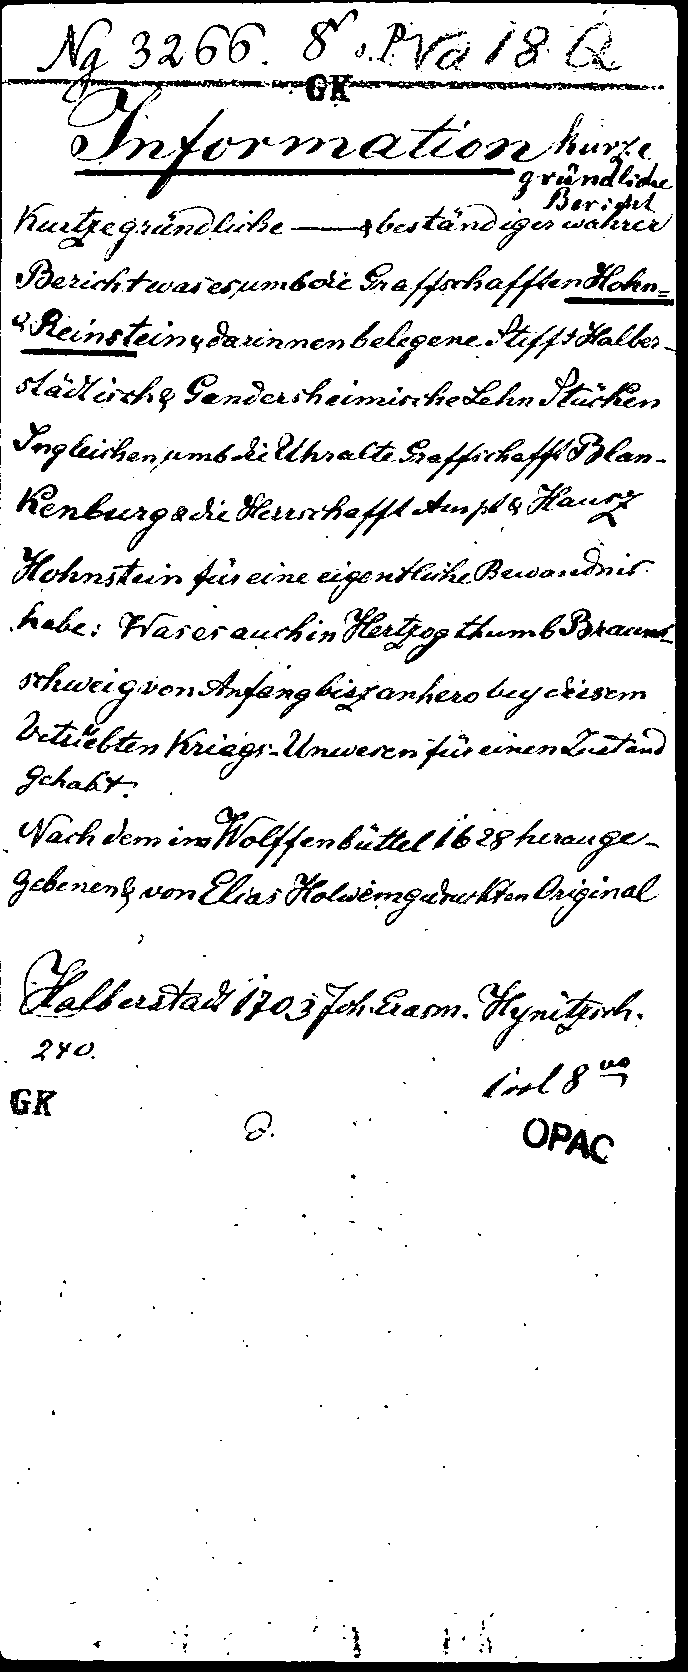 Ng 3266. 8° s. P. Va 18. Q
GK
Information kurze
gründliche
Bericht
Kurtze gründliche —— & beständiger wahrer
Bericht was es umb die Graffschafften Hohn=
& Reinstein & darinnen belegene Stifft Halber-
städtisch & Gandersheimische Lehn Stücken
Ingleichen umb die Uhralte Graffschafft Blan-
kenburg & die Herrschafft Ampt & Hausz
Hohnstein für eine eigentliche Bewandnis
habe: Was es auch in Hertzogthumb Braun-
schweig von Anfang bisz anhero bey diesem
betrübten Kriegs-Unwesen für einen Zustand
gehabt.
Nach dem im Wolffenbüttel 1628 herauge-
gebenen & von Elias Holwein gedruckten Original
Halberstadt 1703 Joh. Erasm. Hynitzsch.
240.
1 vol 8 vo
GK
OPAC